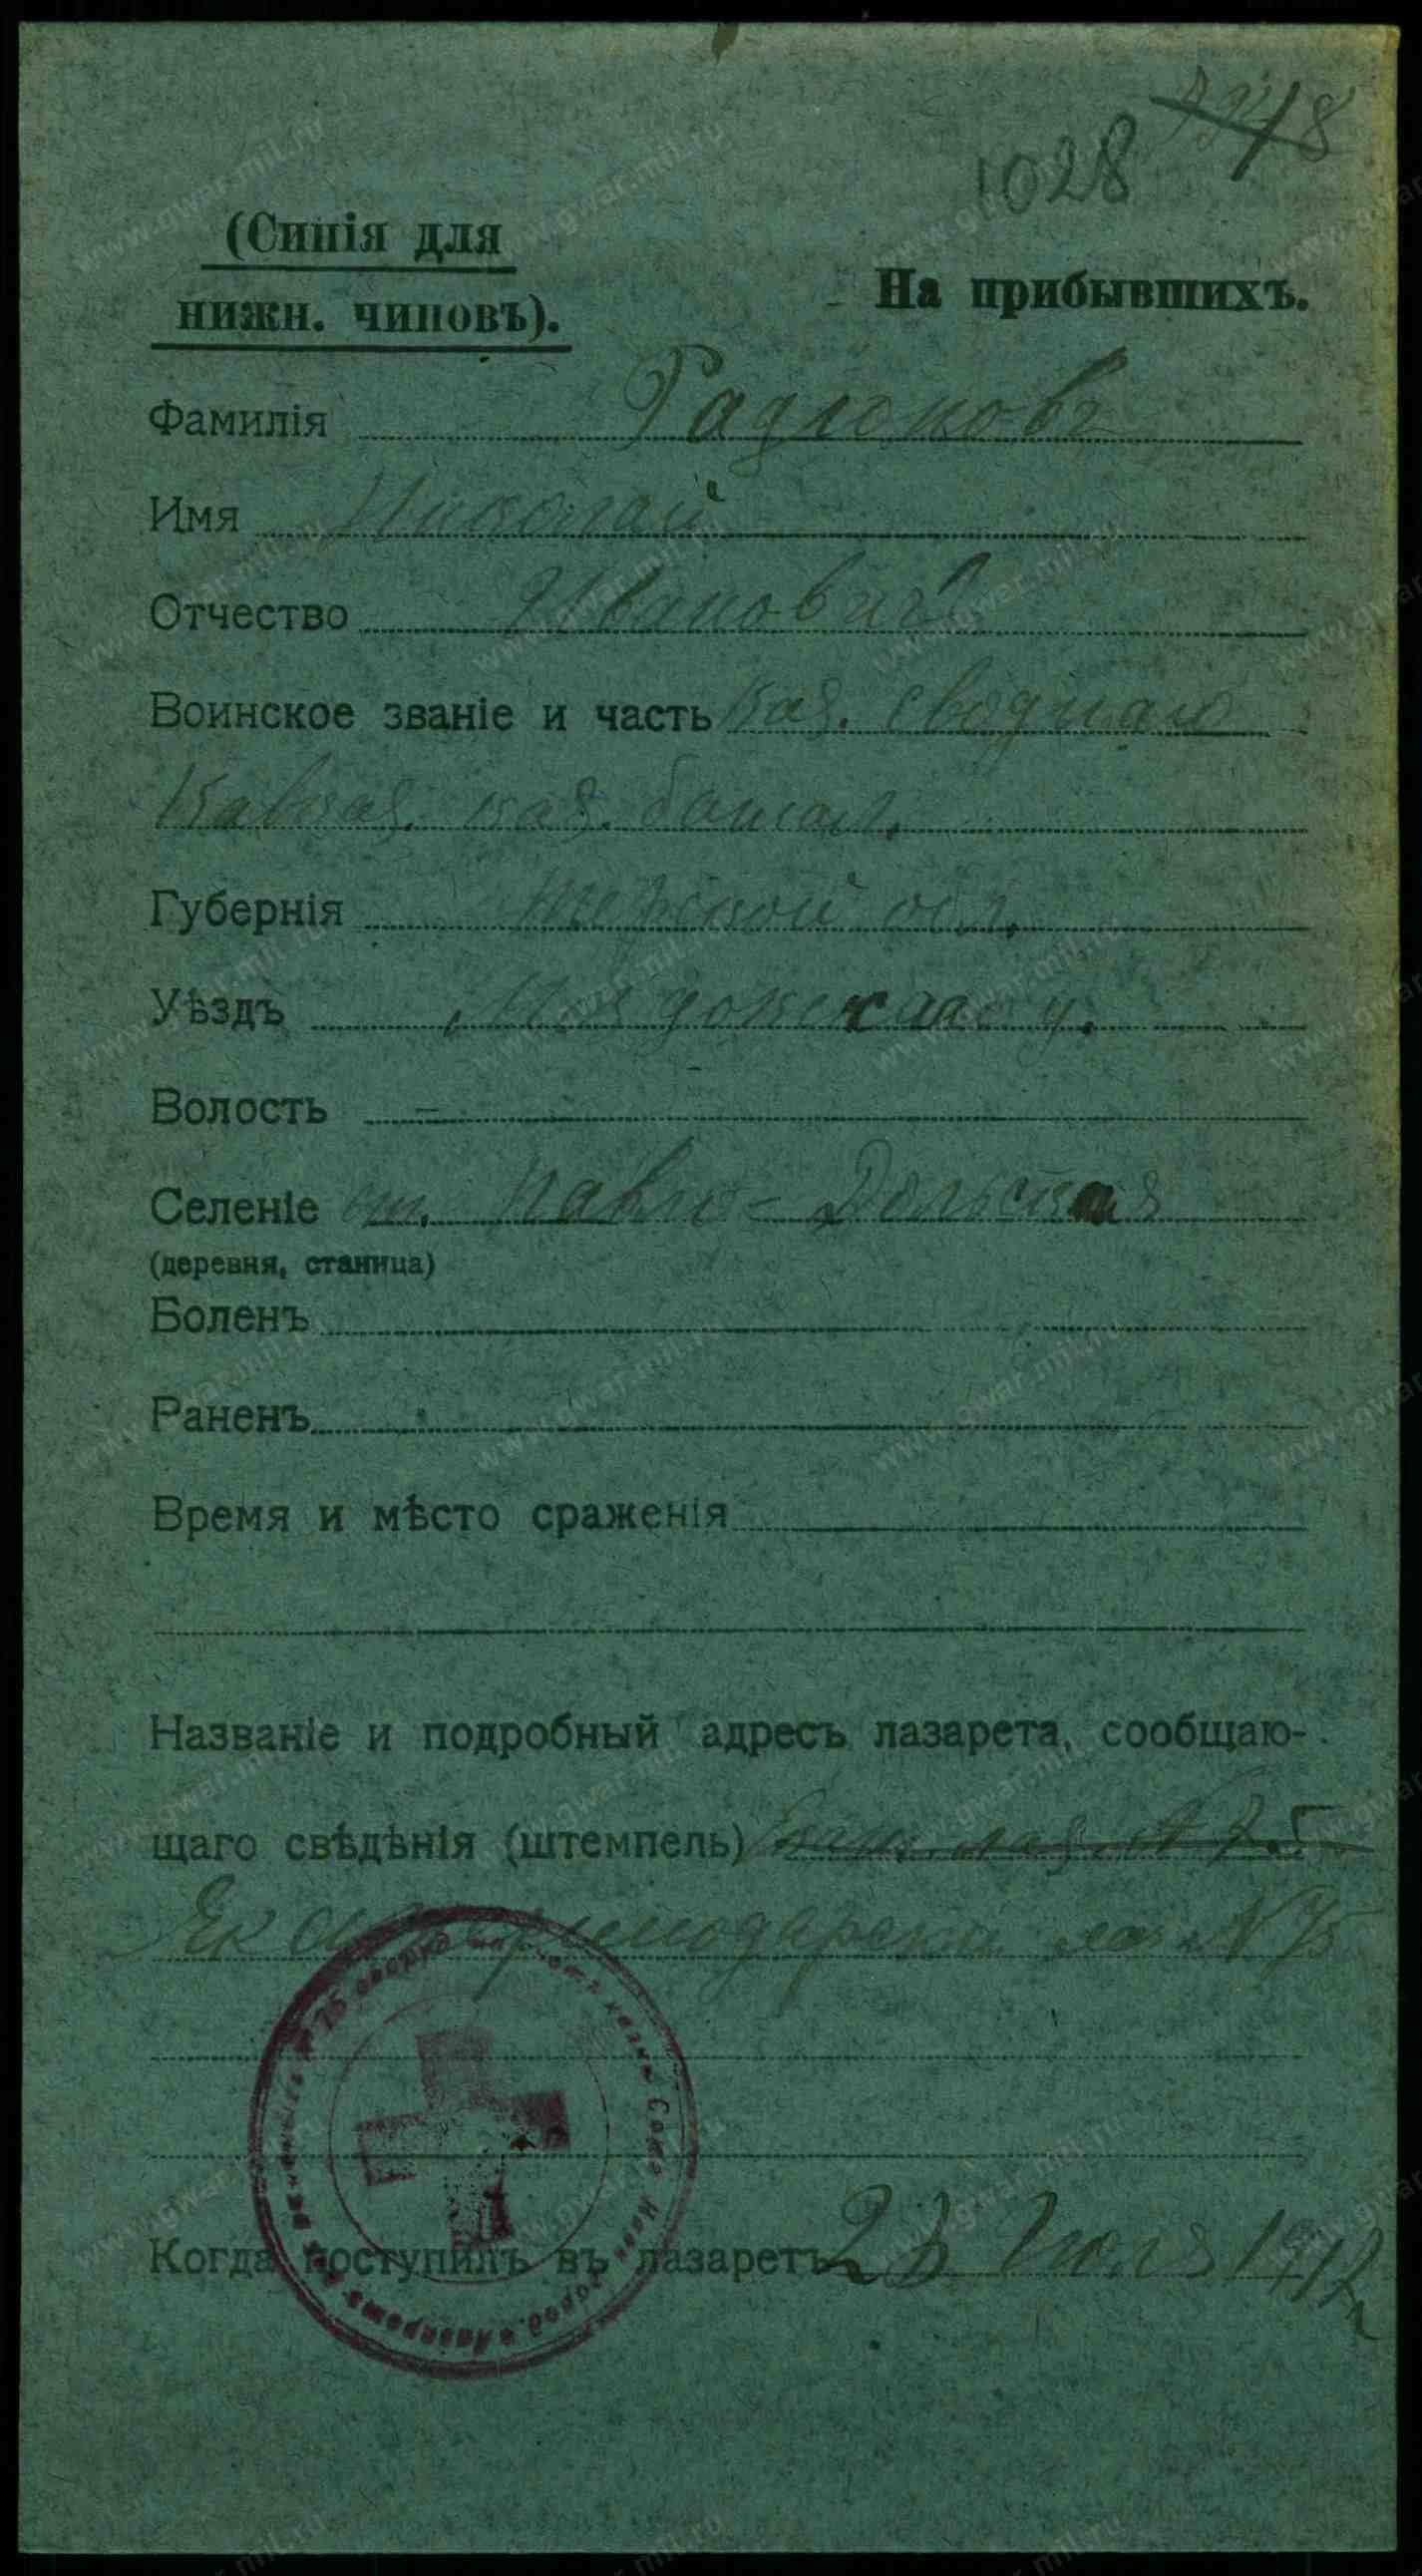 1028
(Синія для
нижн. чиновъ).
На прибывшихъ.
Фамилія Радионовъ
Имя Николай
Отчество Ивановичъ
Воинское званіе и часть Каз. сводная
Кавказ. каз. батал.
Губернія Терской обл.
Уѣздъ Моздокскаго у.
Волость –
Селеніе ст. Павло-Дольская
(деревня, станица)
Боленъ
Раненъ
Время и мѣсто сраженія
Названіе и подробный адресъ лазарета, сообщаю-
щаго свѣдѣнія (штемпель) Екат. лаз. № 75
Екатеринодарски лаз № 75
Когда поступилъ въ лазаретъ Іюля 1917
www.gwar.mil.ru